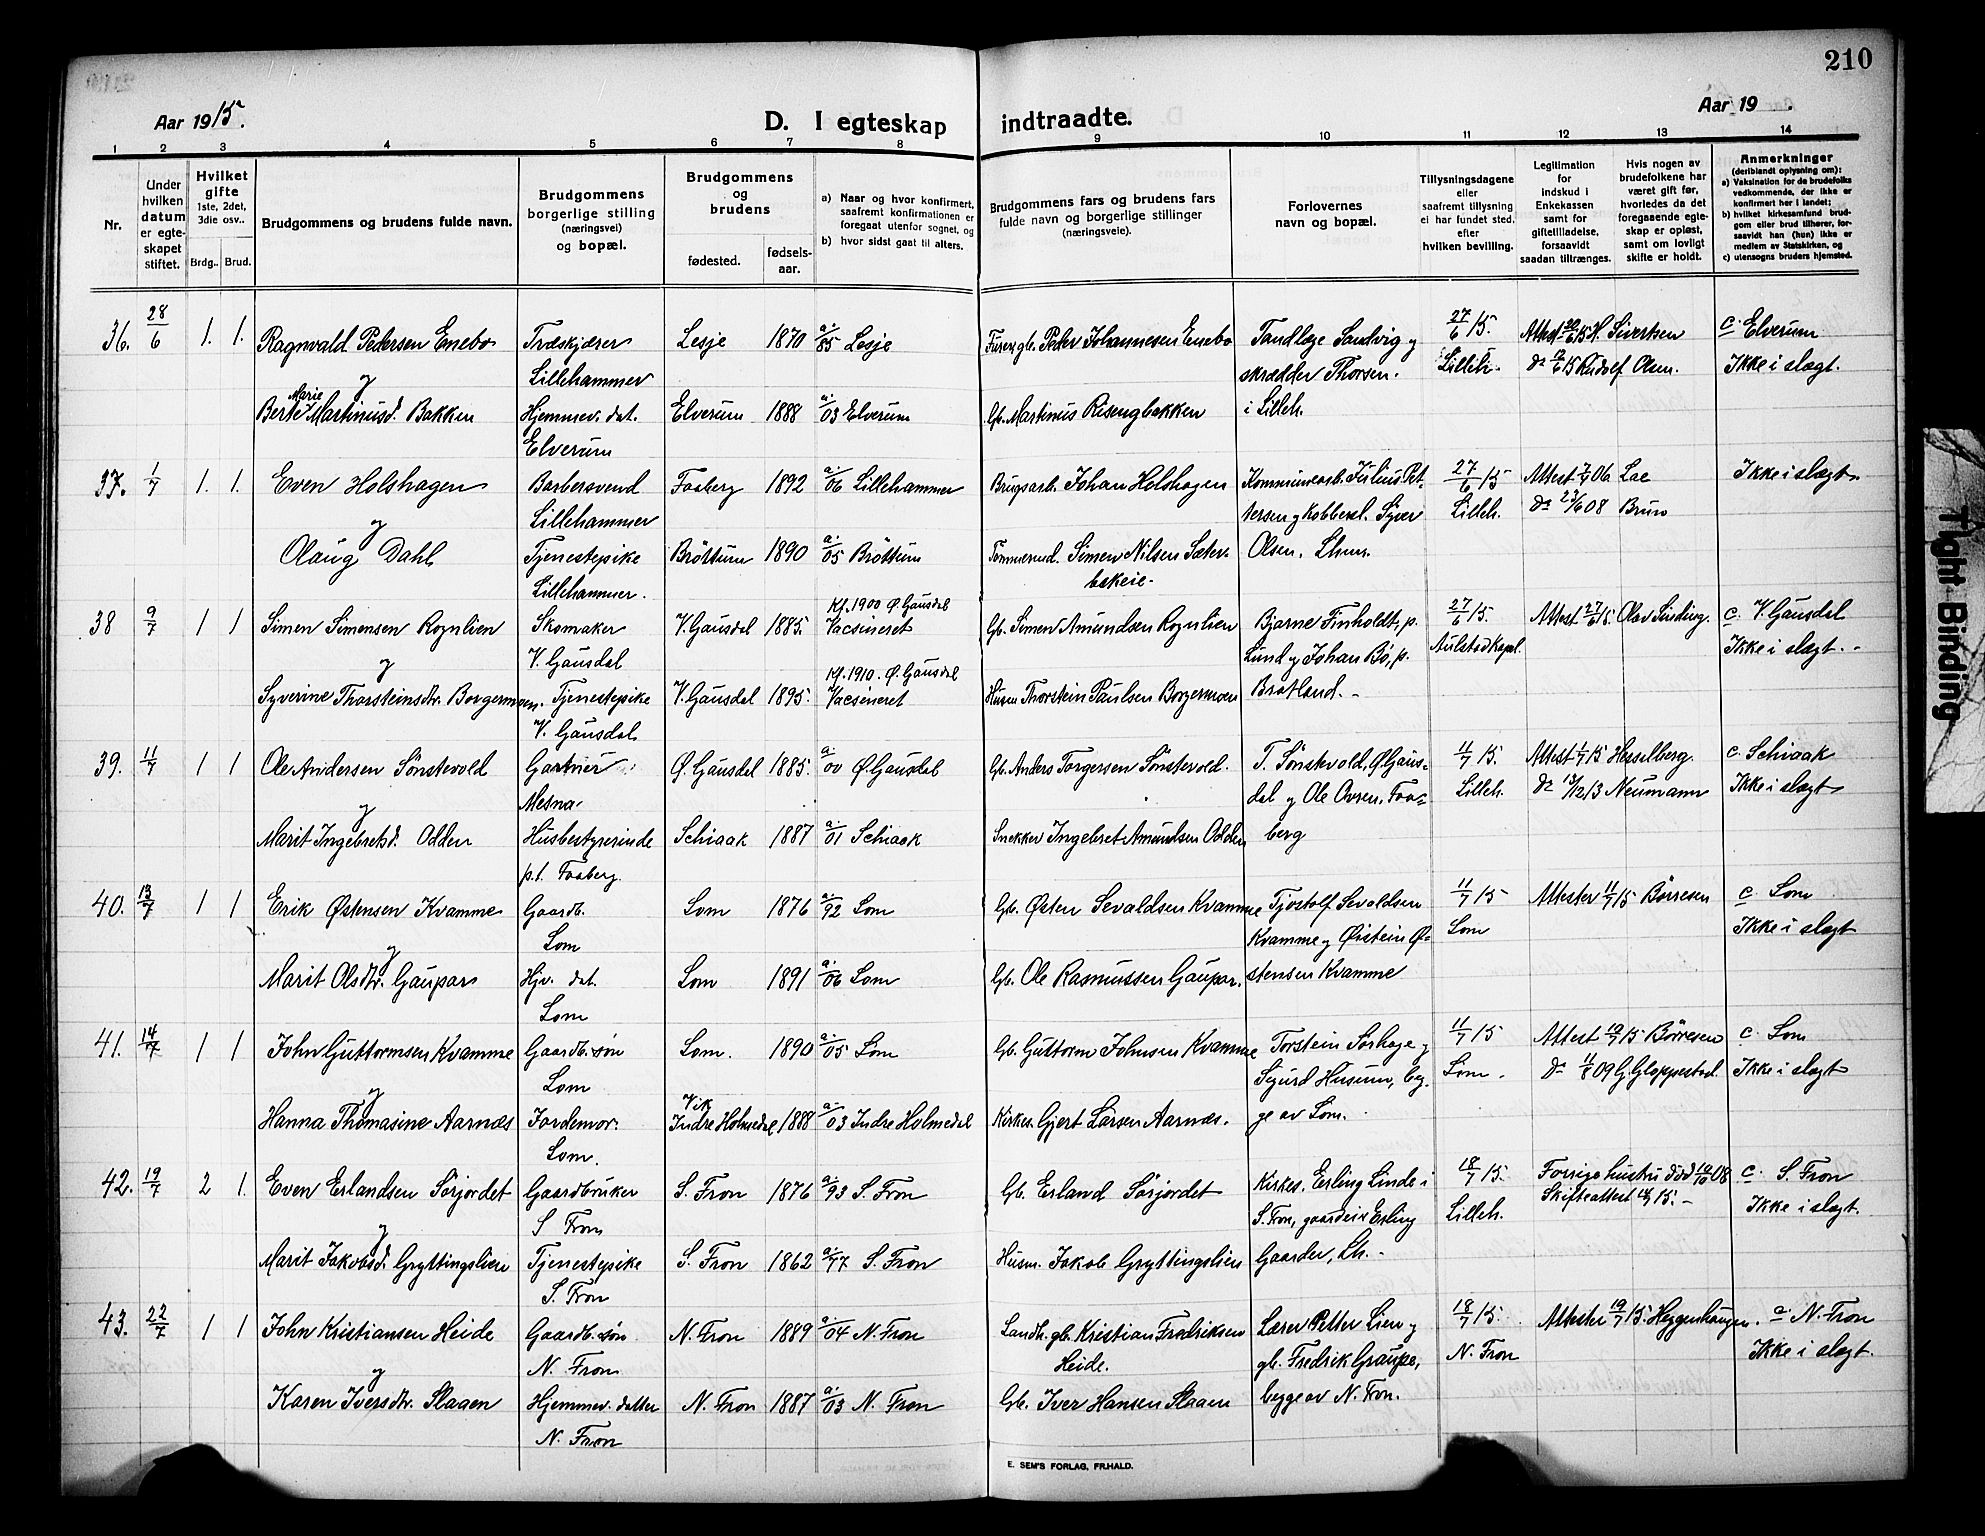 210
Aar 1915.
D. I egteskap indtraadte.
Aar 19 .
1 2 3 4 5 6 7 8 9 10 11 12 13 14
Nr.
Under hvilken datum er egteskapet stiftet.
Hvilket gifte 1ste, 2det, 3die osv..
Brdg.. Brud.
Brudgommens og brudens fulde navn.
Brudgommens borgerlige stilling (næringsvei) og bopæl.
Brudgommens og brudens
fødested. fødselsaar.
a) Naar og hvor konfirmert, saafremt konfirmationen er foregaat utenfor sognet, og
b) hvor sidst gaat til alters.
Brudgommens fars og brudens fars fulde navn og borgerlige stillinger (næringsvei).
Forlovernes navn og bopæl.
Tillysningsdagene eller saafremt tillysning ei har fundet sted, efter hvilken bevilling.
Legitimation for indskud i Enkekassen samt for giftetilladelse, forsaavidt saadan tiltrænges.
Hvis nogen av brudefolkene har været gift før, hvorledes da det foregaaende egteskap er opløst, samt om lovligt skifte er holdt.
Anmerkninger (deriblandt oplysning om):
a) Vaksination for de brudefolks vedkommende, der ikke er konfirmert her i landet;
b) hvilket kirkesamfund brudgom eller brud tilhører, forsaavidt han (hun) ikke er medlem av Statskirken, og
c) utensogns bruders hjemsted.
36. 28/6 1. 1. Ragnvald Pedersen Enebo Træskjærer Lesje 1870 a. 85 Lesje Peder Johannesen Enebo Tandlæge Sandvig og 27/6 15. H. Sivertsen c. Elverum
Lillehammer skrædder Thorsen. Lilleh. Rudolf Olsen. Ikke i slægt.
og
Berte Marie Martinusd. Bakken Hjemmev. dat. Elverum 1888 a. 03 Elverum Gb. Martinus Risengbakken i Lilleh.
Elverum
37. 1/7 1. 1. Even Holshagen Barbersvend Faaberg 1892 a. 06 Lillehammer Brugsarb. Johan Holshagen Kommunearb. Julius Pet- 27/6 15 Attest 7/4 06. Lae Ikke i slægt.
og Lillehammer tersen og Kobbersl. Syver Lilleh. Do 23/6 08 Bruun
Olaug Dahl Tjenestepike Brøttum 1890 a. 05 Brøttum Tømmermd. Simen Nilsen Sæter- Olsen. Lhmr.
Lillehammer. bakeie.
38 9/7 1 1 Simen Simensen Rognlien Skomaker V. Gausdal 1885. Kf. 1900 Ø. Gausdal Vacsineret Gb. Simen Amundsen Rognlien Bjarne Finholdt, p. 27/6 15. Attest 27/6 15. Olav Sinding. c. V. Gausdal
og V. Gausdal Lund og Johan Bø, p. Aulstad kapel. Ikke i slægt.
Syverine Thorsteinsdtr. Borgermoen. Tjenestepike V. Gausdal 1895. Kf. 1910. Ø. Gausdal Vacsineret Husm Thorstein Paulsen Borgermoen Bratland.
V. Gausdal
39. 11/7 1 1 Ole Andersen Sønstevold Gartner Ø. Gausdal 1885. a. 00 Ø. Gausdal Gb. Anders Torgersen Sønstevold. T. Sønstevold. Ø. Gaus- 4/7 15. Attest 1/7 15 Hesselberg. c. Schiaak
og Mesna. dal og Ole Ovren, Faa- Lilleh. Neumann Ikke i slægt
Marit Ingebretsd. Odden Husbestyrerinde Schiaak 1887 a. 01 Schiaak Snekker Ingebret Amundsen Odden berg
p.t. Faaberg.
40. 13/7 1 1 Erik Østensen Kvamme Gaardb. Lom 1876 a. 92 Lom Gb. Østen Sevaldsen Kvamme Tjostolf Sevaldsen 11/7 15 Attester 11/7 15 Børresen c. Lom
og Lom Kvamme og Øistein Ø- Lom Ikke i slægt
Marit Olsdtr. Gaupar Hjv. dat. Lom 1891 a. 06 Lom Gb. Ole Rasmussen Gaupar. stensen Kvamme
Lom
41. 14/7 1 1 John Guttormsen Kvamme Gaardb. søn Lom. 1890 a. 05 Lom Gb. Guttorm Johnsen Kvamme Torstein Sørhage og 11/7 15 Attest 19/7 15 Børresen c. Lom
og Lom Sigurd Husum, beg- Lom. Do 11/8 09 G. Gloppestad. Ikke i slægt
Hanna Thomasine Aarnæs Jordemor. Vik Indre Holmedal 1888 a. 03 Indre Holmedal Kirkes. Gjert Larsen Aarnæs. ge av Lom.
Lom.
42. 19/7 2 1. Even Erlandsen Sørjordet Gaardbruker S. Fron 1876 a. 93 S. Fron Gb. Erland Sørjordet Kirkes. Erling Linde i 18/7 15. Forrige hustru død 08 c. S. Fron
og S. Fron S. Fron, gaardeier Erling Lilleh. Skifteattest 15. Ikke i slægt.
Marit Jakobsd. Gryttingslien Tjenestepike S. Fron 1862 a. 77 S. Fron Husm. Jakob Gryttingslien Gaarder, Lh.
S. Fron
43. 22/7 1 1 John Kristiansen Heide Gaardb. søn N. Fron 1889 a. 04 N. Fron Landh. gb. Kristian Fredriksen Lærer Petter Lien og 18/7 15. Attester 19/7 15. Heggenhaugen. c. N. Fron
og N. Fron Heide. gb. Fredrik Graupe, N. Fron Ikke i slægt.
Karen Iversdtr. Slaaen Hjemmev. datter N. Fron 1887 a. 03 N. Fron Gb. Iver Hansen Slaaen begge av N. Fron.
N. Fron
E. SEM'S FORLAG, FR.HALD.
Tight Binding